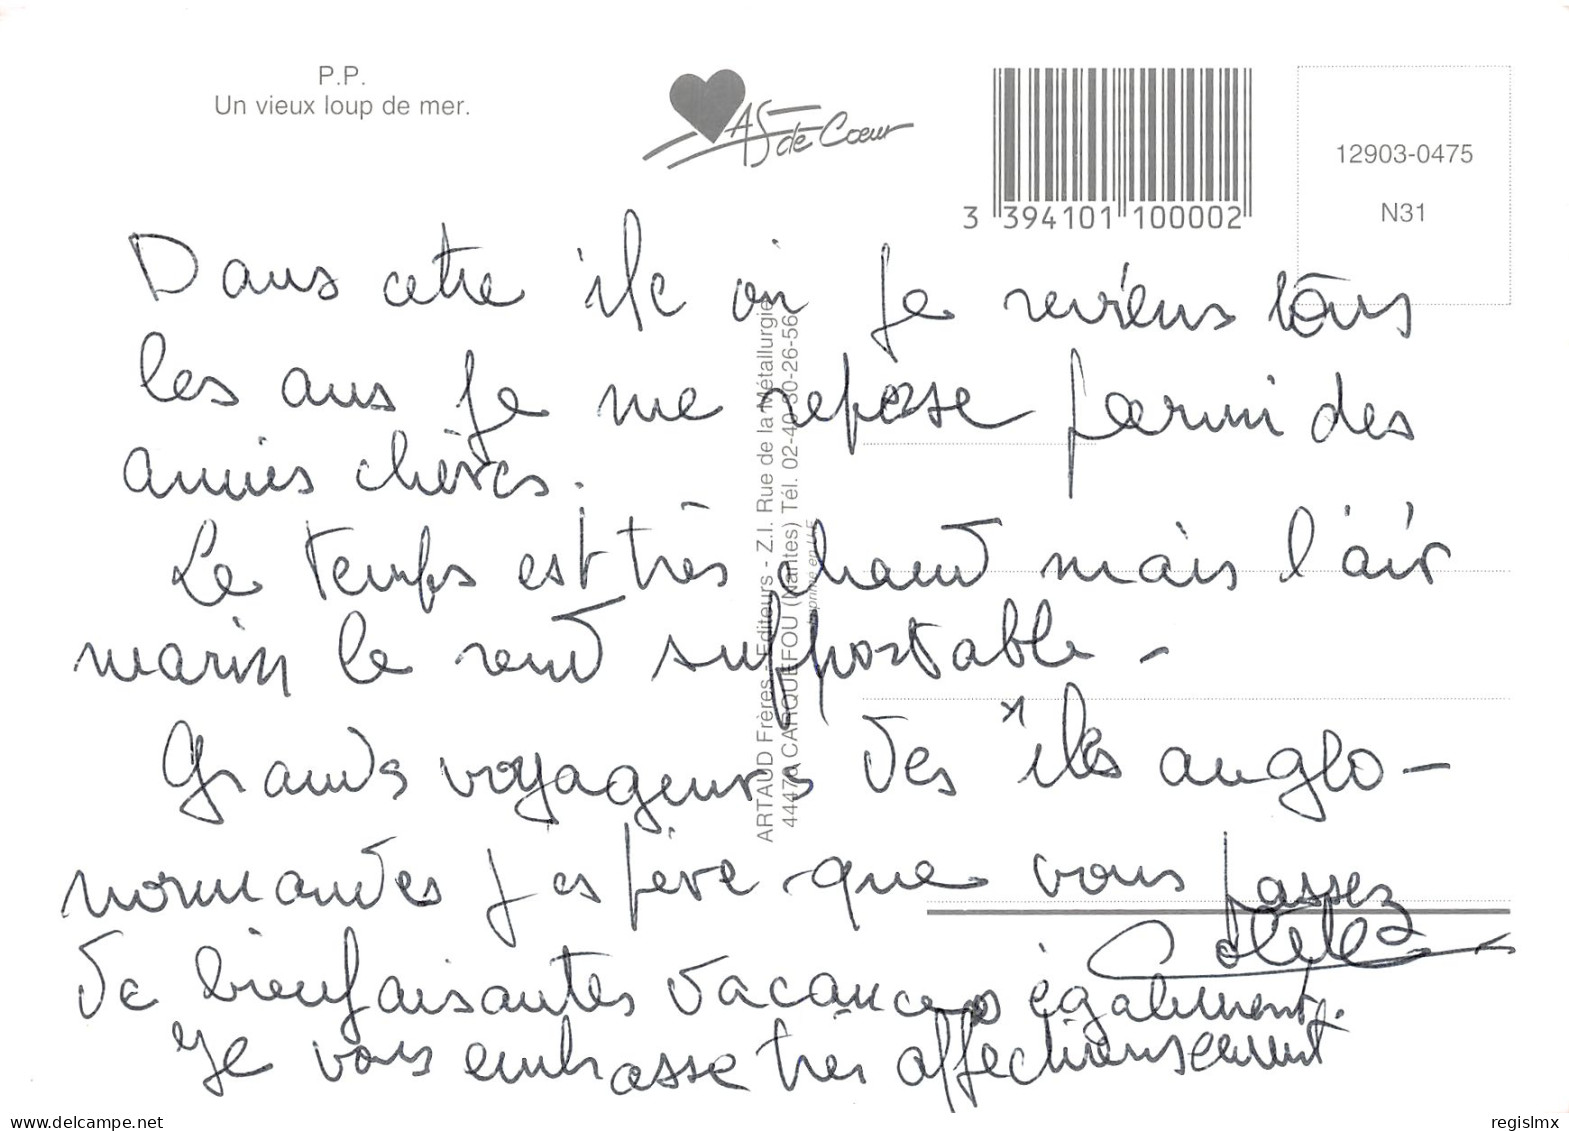 P.P.
Un vieux loup de mer.
AS de Cœur
3 394101 100002
12903-0475
N31
Dans cette île où je reviens tous
les ans je me repose parmi des
amies chères.
Le temps est très chaud mais l'air
marin le rend supportable -
Grands voyageurs des îles anglo-
normandes j'espère que vous passez
de bienfaisantes vacances également.
Je vous embrasse très affectueusement
Colette
ARTAUD Frères - Editeurs - Z.I. Rue de la Métallurgie
44470 CARQUEFOU (Nantes) Tél. 02-40-30-26-56
Imprimé en U.E.
www.delcampe.net
regislmx